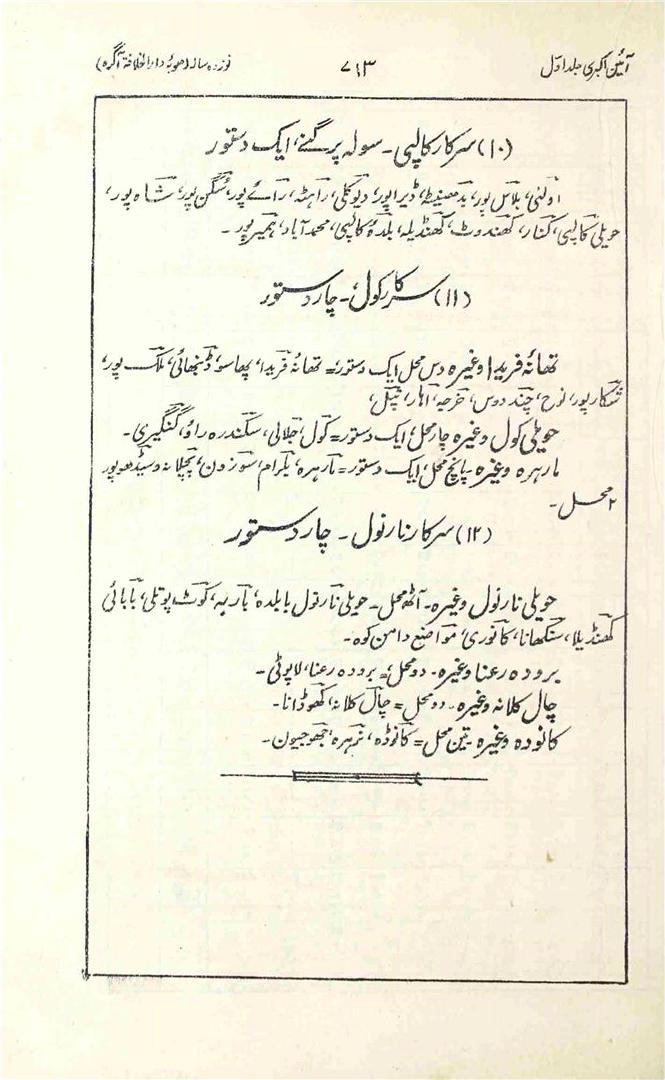 آئین اکبری جلد اول ۷۱۳ نوزدہ سالہ (صوبۂ دار الخلافۃ آگرہ)
(۱۰) سرکار کالپی۔ سولہ پرگنے، ایک دستور
اولئی، بلاس پور، بدھنیٹھ، ڈیراپور، دیوکلی، راہٹہ، رائے پور، سُگن پور، شاہ پور،
حویلی کالپی، کنار، کھندوٹ، کھنڈیلہ، بلدۂ کالپی، محمدآباد، ہمیرپور۔
(۱۱) سرکار کول، ۔ چار دستور
تھانہ فریدا وغیرہ دس محل ایک دستور = تھانہ فریدا، پہاسو، ڈنبھائی، ملک پور،
شکارپور، نوح، چندوس، خرجہ، اہار، تپل،
حویلی کول وغیرہ چار محل، ایک دستور = کول، جلالی، سکندرہ راؤ، گنگیری۔
مارہرہ وغیرہ پانچ محل، ایک دستور = مارہرہ، بلگرام، سوزون، پچپلانہ وسیڈھوپور
۲ محل۔
(۱۲) سرکار نارنول ۔ چار دستور
حویلی نارنول وغیرہ۔ آٹھ محل۔ حویلی نارنول بابلدہ، باربہ، کوٹ پوتلی، بابائی
کھنڈیلا، سنگھانا، کانوری، مواضع دامن کوہ۔
برودہ رعنا وغیرہ۔ دو محل = برودہ رعنا، لاپوٹی۔
چال کلانہ وغیرہ۔ دو محل = چال کلانہ، کھوڈانا۔
کانودہ وغیرہ تین محل = کانوڈہ، نرہرہ، جھوجیون۔